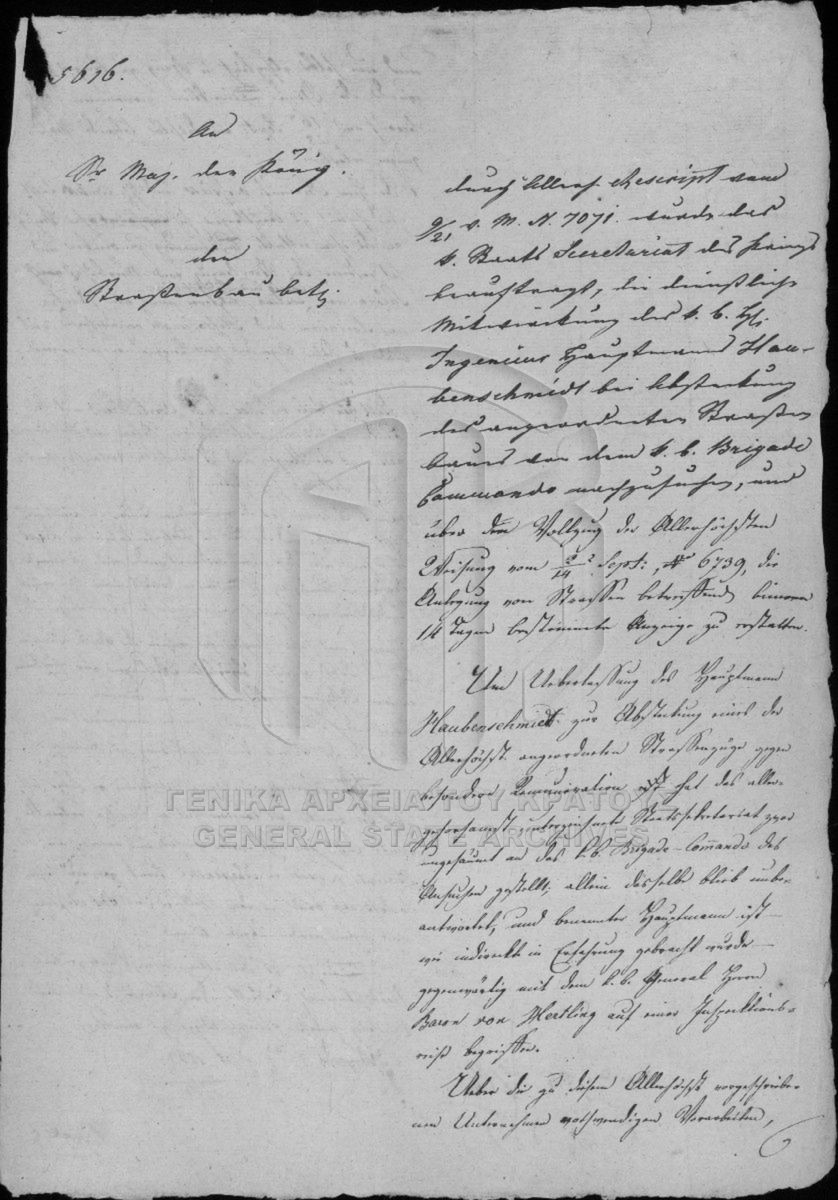 5616.
An
Sr Maj. den König.
den
Strassenbau betr.
durch Allerh. Rescript vom
9/21 v. M. N. 7071. wurde das
k. Staats Secretariat des Kriegs
beauftragt, die dienstliche
Mitwirkung des k. b. H.
Ingenieur Hauptmanns Hau-
benschmidt bei Absteckung
des angeordneten Strassen
baues von dem k. b. Brigade
Commando nachzusuchen, und
über den Vollzug der Allerhöchsten
Weisung vom 2/14 Sept: No 6739, die
Anlegung von Strassen betreffend, binnen
14 Tagen bestimmte Anzeige zu erstatten.
Um Ueberlassung des Hauptmann
Haubenschmidt zur Absteckung eines der
Allerhöchst angeordneten Strassenzüge gegen
besondere Remuneration hat das aller-
gehorsamst unterzeichnete Staatssekretariat zwar
ungesäumt an das k. b. Brigade-Commando das
Ansuchen gestellt, allein dasselbe blieb unbe-
antwortet, und benannter Hauptmann ist –
wie indirekte in Erfahrung gebracht wurde –
gegenwärtig mit dem k. b. General Herrn
Baron von Hertling auf einer Inspektions-
reise begriffen.
Ueber die zu diesem Allerhöchst vorgeschriebe-
nen Unternehmen nothwendigen Vorarbeiten,
ΓΕΝΙΚΑ ΑΡΧΕΙΑ ΤΟΥ ΚΡΑΤΟΥΣ
GENERAL STATE ARCHIVES